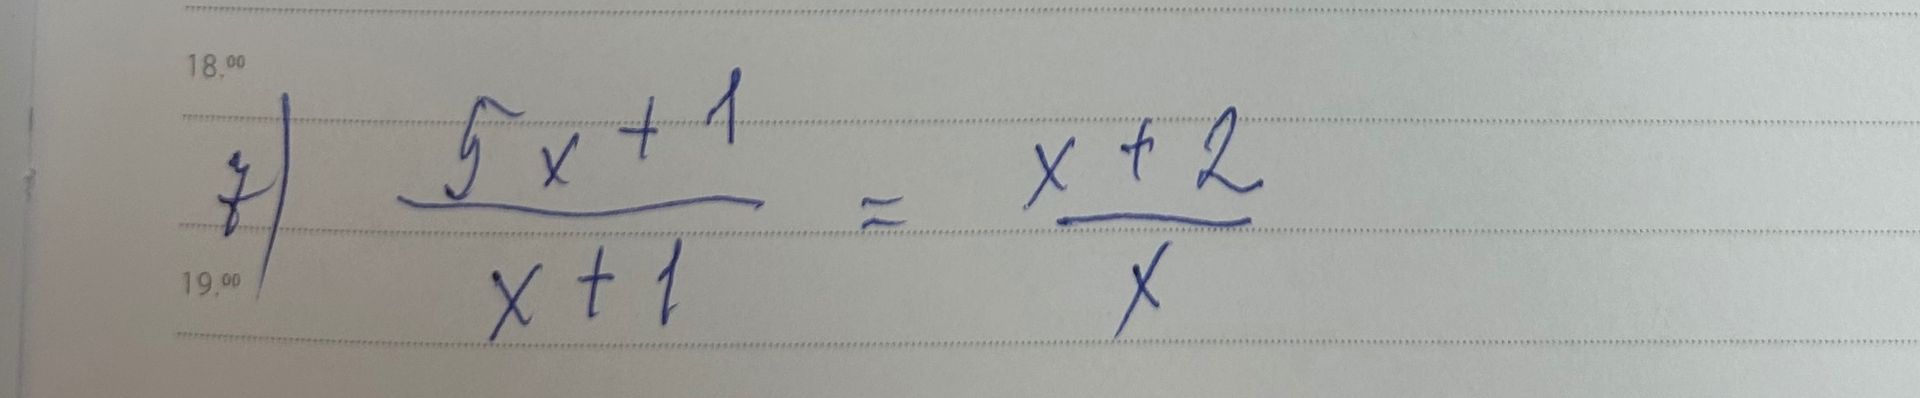 18.00
7) 5x + 1 / x + 1 = x + 2 / x
19.00